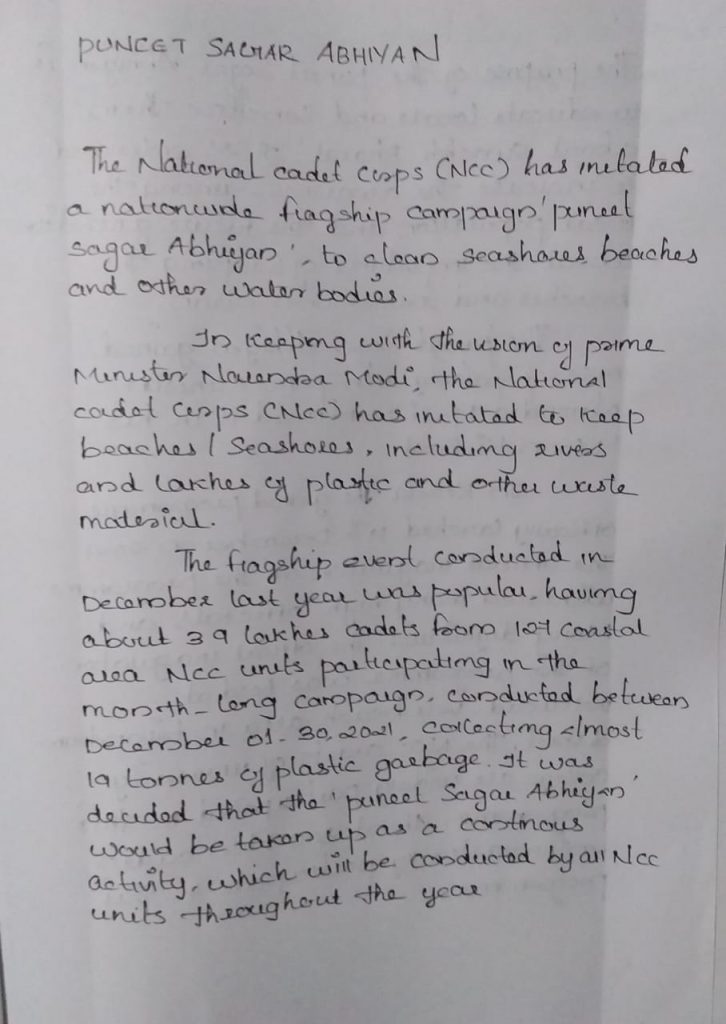 PUNEET SAGAR ABHIYAN
The National cadet corps (NCC) has initated
a nationwide flagship campaign 'puneet
Sagar Abhiyan', to clean seashores beaches
and other water bodies.
In keeping with the vision of prime
Minister Narendra Modi, the National
cadet corps (NCC) has initated to keep
beaches / Seashores, including rivers
and lakhes of plastic and other waste
material.
The flagship event conducted in
December last year was popular, having
about 3 9 lakhes cadets from 127 coastal
area NCC units participating in the
month-long campaign, conducted between
December 01-30, 2021, collecting almost
19 tonnes of plastic garbage. It was
decided that the 'puneet Sagar Abhiyan'
would be taken up as a continous
activity, which will be conducted by all NCC
units throughout the year